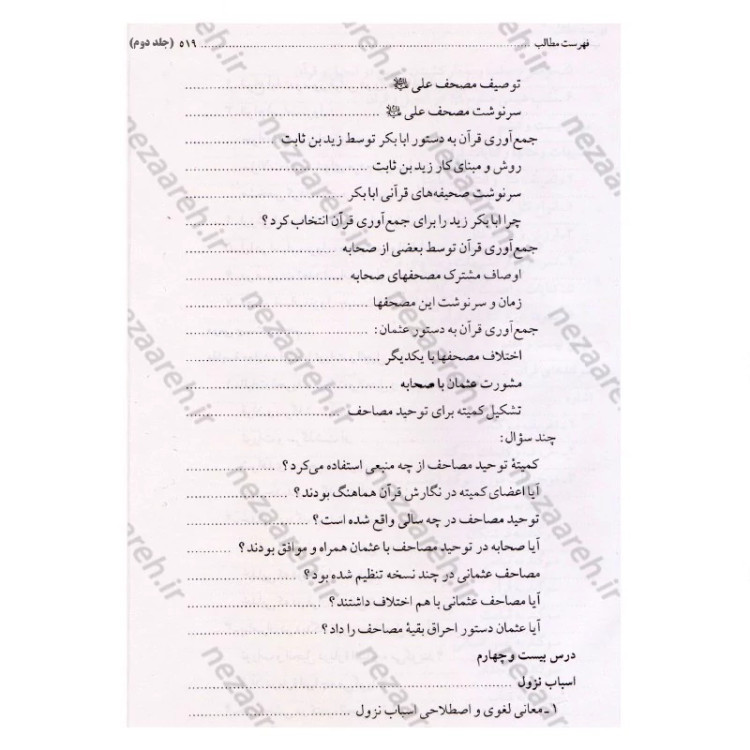 فهرست مطالب ........ ۵۱۹ (جلد دوم)
توصیف مصحف علی ﷺ ........
سرنوشت مصحف علی ﷺ ........
جمع‌آوری قرآن به دستور ابا بکر توسط زید بن ثابت ........
روش و مبنای کار زید بن ثابت ........
سرنوشت صحیفه‌های قرآنی ابا بکر ........
چرا ابا بکر زید را برای جمع‌آوری قرآن انتخاب کرد؟ ........
جمع‌آوری قرآن توسط بعضی از صحابه
اوصاف مشترک مصحفهای صحابه ........
زمان و سرنوشت این مصحفها ........
جمع‌آوری قرآن به دستور عثمان:
اختلاف مصحفها با یکدیگر ........
مشورت عثمان با صحابه ........
تشکیل کمیته برای توحید مصاحف ........
چند سؤال:
کمیتهٔ توحید مصاحف از چه منبعی استفاده می‌کرد؟ ........
آیا اعضای کمیته در نگارش قرآن هماهنگ بودند؟ ........
توحید مصاحف در چه سالی واقع شده است؟ ........
آیا صحابه در توحید مصاحف با عثمان همراه و موافق بودند؟ ........
مصاحف عثمانی در چند نسخه تنظیم شده بود؟ ........
آیا مصاحف عثمانی با هم اختلاف داشتند؟ ........
آیا عثمان دستور احراق بقیهٔ مصاحف را داد؟ ........
درس بیست و چهارم
اسباب نزول ........
۱ـ معانی لغوی و اصطلاحی اسباب نزول ........
nezaareh.ir